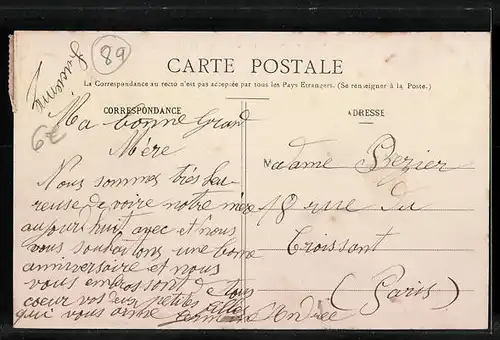 89
CARTE POSTALE
La Correspondance au recto n'est pas acceptée par tous les Pays Etrangers. (Se renseigner à la Poste.)
CORRESPONDANCE
ADRESSE
6€
Ma bonne Grand
Mère
Nous sommes très heu-
reuse de voire notre mère
aujourd'huit avec et nous
vous souhaitons une bonne
anniversaire et nous
vous embrassont de tous
coeur vos deux petites filles
qui vous aime Andrée
Madame Bezier
18 rue du
Croissant
(Paris)